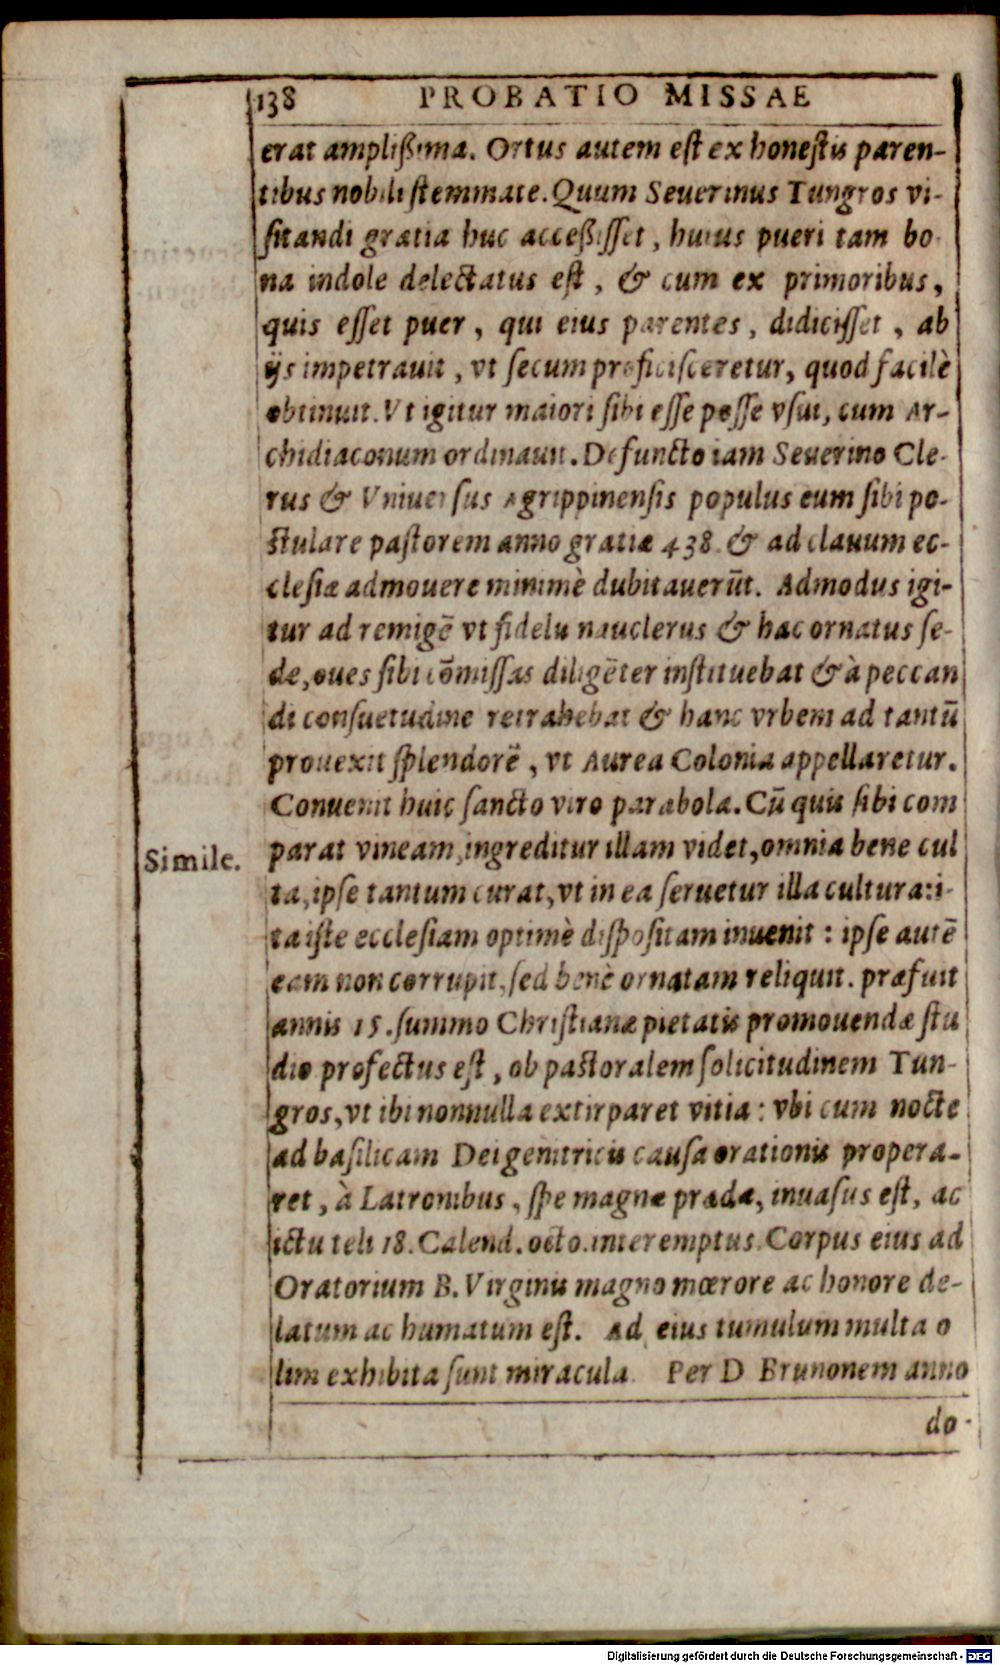 138 PROBATIO MISSAE
erat amplißima. Ortus autem eſt ex honeſtis paren-
tibus nobili ſtemmate. Quum Seuerinus Tungros vi-
ſitandi gratia huc acceßiſſet, huius pueri tam bo
na indole delectatus eſt, & cum ex primoribus,
quis eſſet puer, qui eius parentes, didiciſſet, ab
ijs impetrauit, vt ſecum proficiſceretur, quod facilè
obtinuit. Vt igitur maiori ſibi eſſe poſſe vſui, eum Ar-
chidiaconum ordinauit. Defuncto iam Seuerino Cle-
rus & Vniuerſus Agrippinenſis populus eum ſibi po-
ſtulare paſtorem anno gratiæ 438. & ad clauum ec-
cleſiæ admouere minimè dubitauerūt. Admodus igi-
tur ad remigē vt fidelis nauclerus & hac ornatus ſe-
de, oues ſibi cōmiſſas diligēter inſtituebat & à peccan
di conſuetudine retrahebat & hanc vrbem ad tantū
prouexit ſplendorē, vt Aurea Colonia appellaretur.
Conuenit huic ſancto viro parabola. Cū quis ſibi com
parat vineam, ingreditur illam videt, omnia bene cul
Simile.
ta, ipſe tantum curat, vt in ea ſeruetur illa cultura: i-
ta iſte eccleſiam optimè diſpoſitam inuenit: ipſe autē
eam non corrupit, ſed benè ornatam reliquit. præfuit
annis 15. ſummo Chriſtianæ pietatis promouendæ ſtu
dio profectus eſt, ob paſtoralem ſolicitudinem Tun-
gros, vt ibi nonnulla extirparet vitia: vbi cum nocte
ad baſilicam Deigenitricis cauſa orationis propera-
ret, à Latronibus, ſpe magnæ prædæ, inuaſus eſt, ac
ictu teli 18. Calend. octo. interemptus. Corpus eius ad
Oratorium B. Virginis magno mœrore ac honore de-
latum ac humatum eſt. Ad eius tumulum multa o
lim exhibita ſunt miracula. Per D Brunonem anno
do-
Digitalisierung gefördert durch die Deutsche Forschungsgemeinschaft - DFG